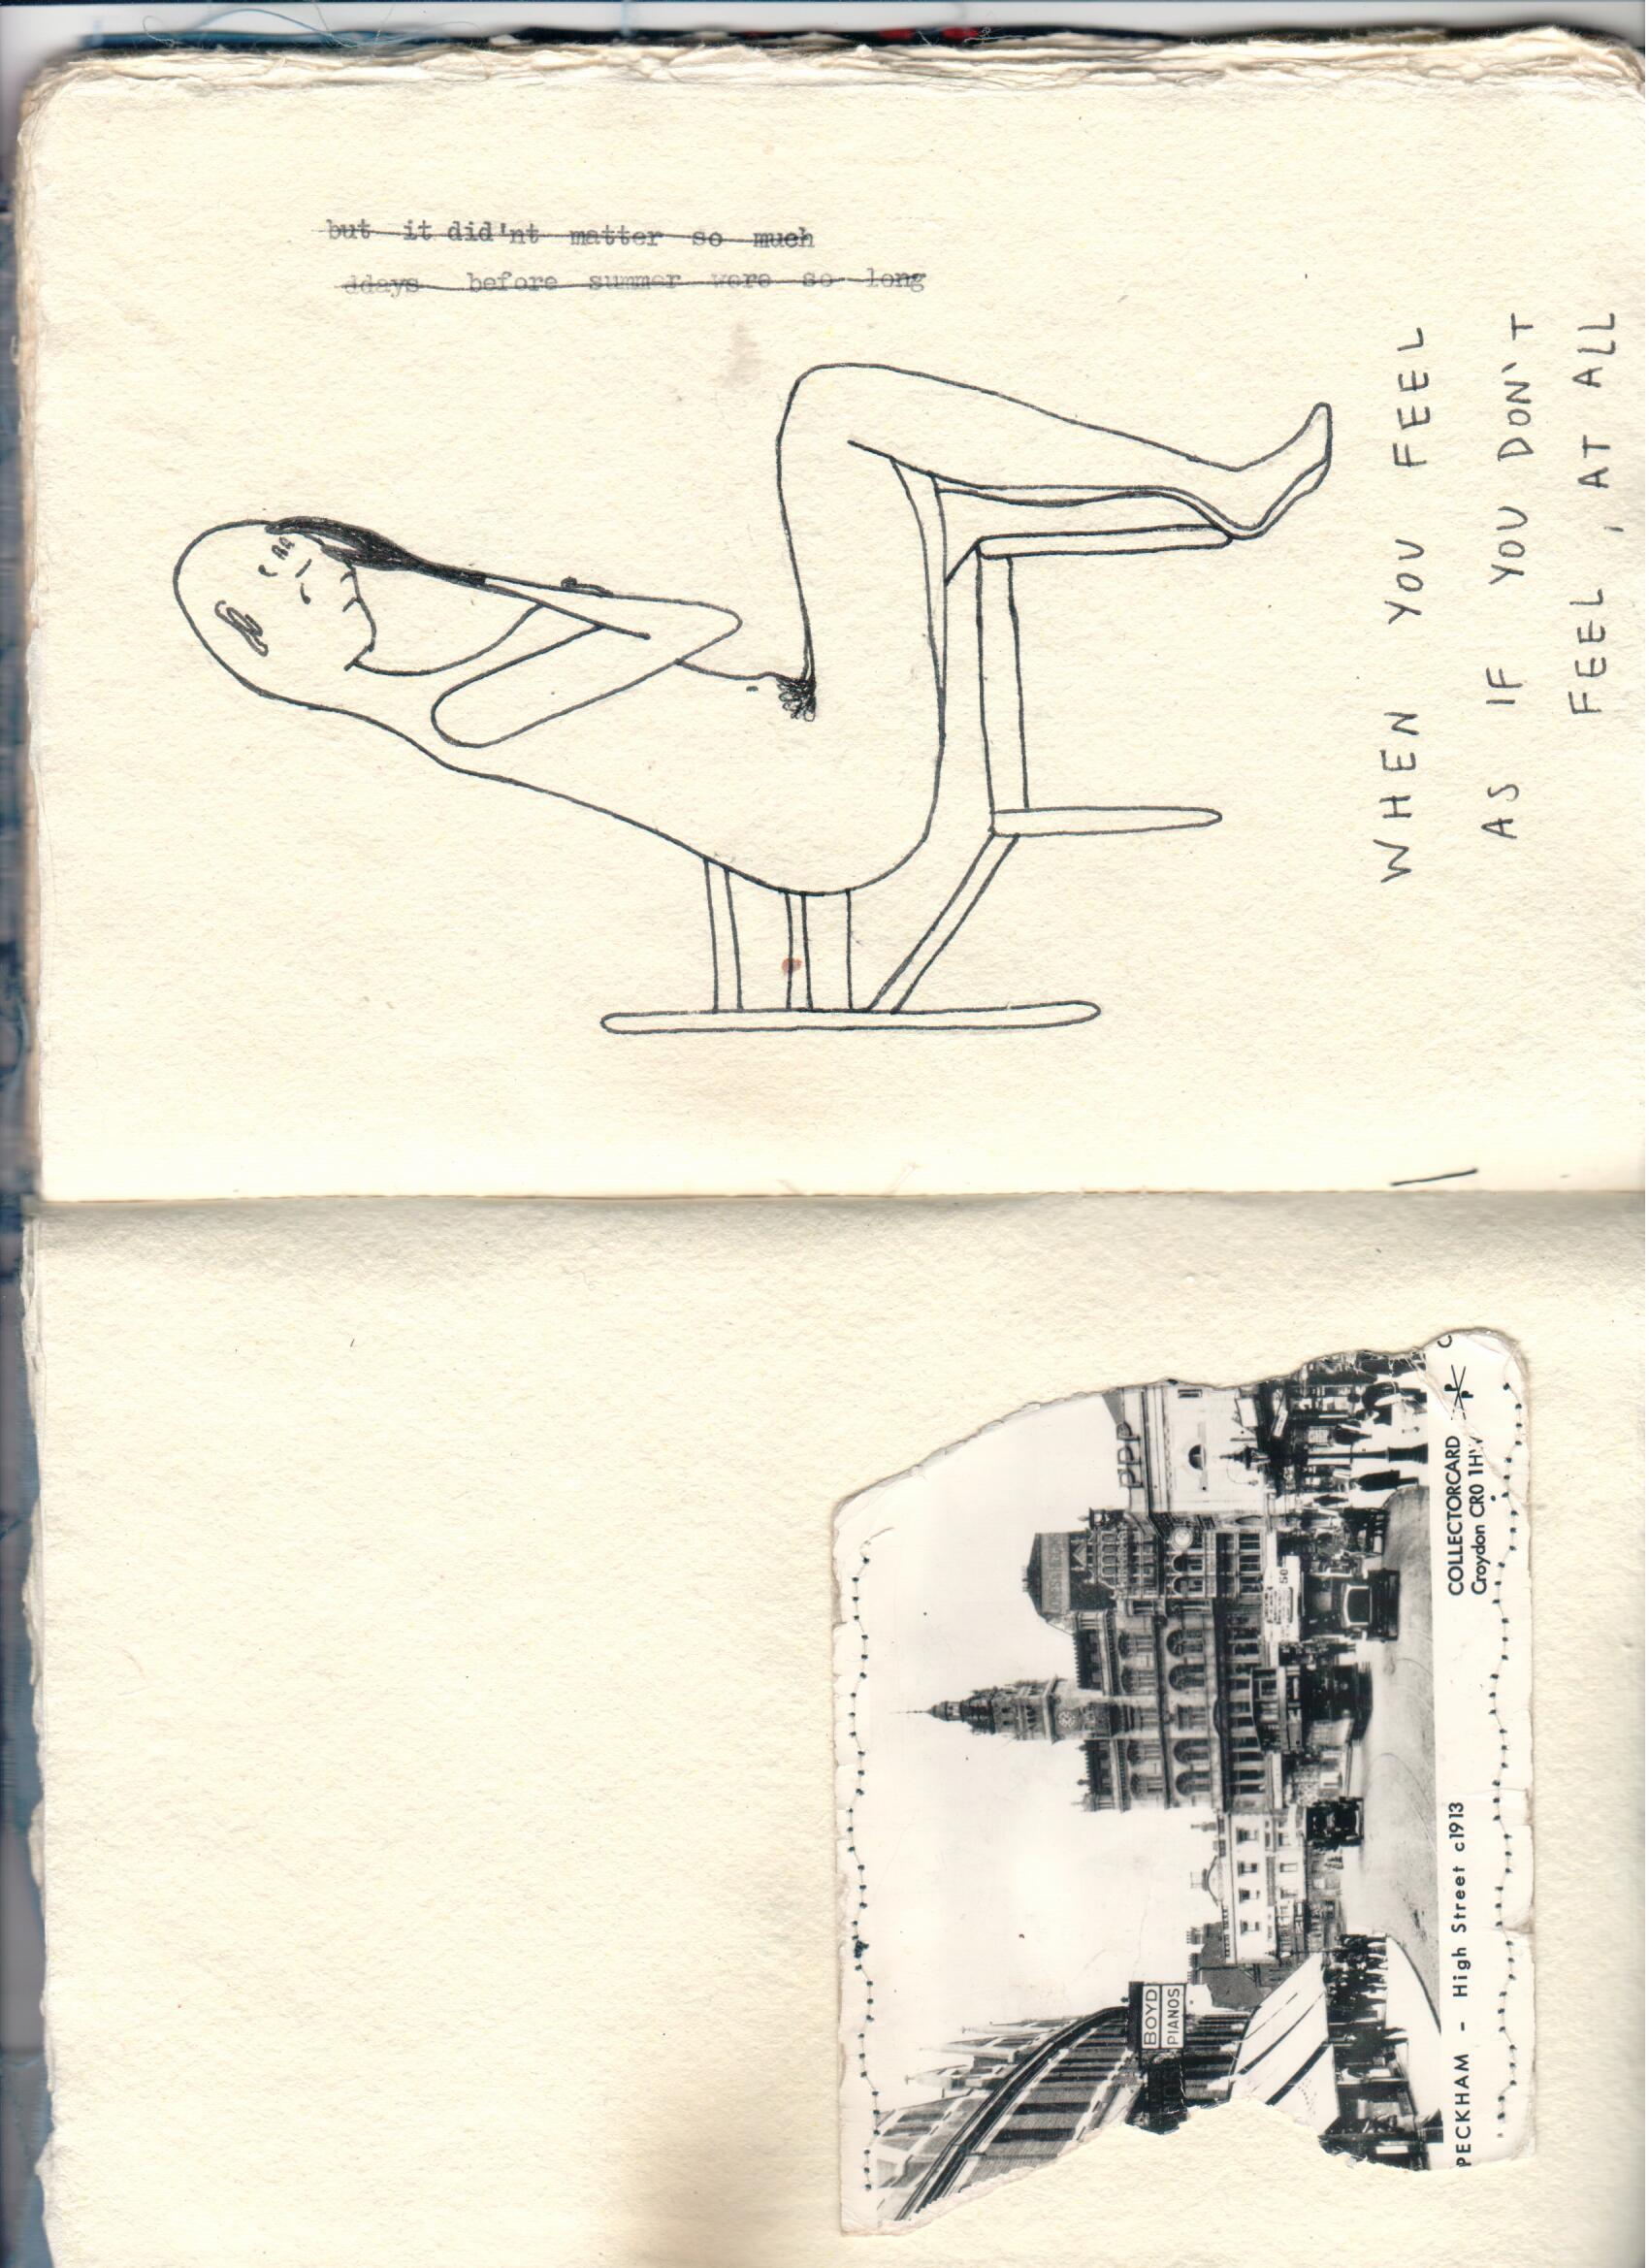 JONES & HIGGINS
PPP
BOYD
PIANOS
50
PECKHAM - High Street c1913
COLLECTORCARD
Croydon CR0 1HW
P
P
C
but it did'nt matter so much
ddays before summer were so long
WHEN YOU FEEL
AS IF YOU DON'T
FEEL , AT ALL